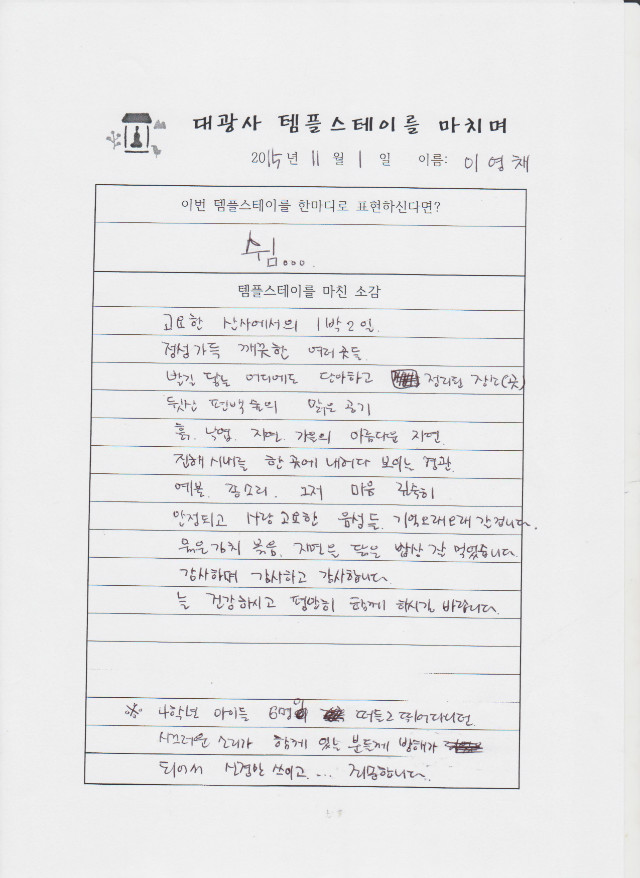 대광사 템플스테이를 마치며
2015년 11월 1일 이름: 이영채
이번 템플스테이를 한마디로 표현하신다면?
쉼...
템플스테이를 마친 소감
고요한 산사에서의 1박2일.
정성가득 깨끗한 여러곳들.
발길 닿는 어디에도 단아하고 정리된 장소(곳)
뒷산 편백숲의 맑은 공기
흙, 낙엽, 자연. 가을의 아름다운 자연.
진해시내를 한 곳에 내려다 보이는 경관.
예불, 종소리, 그저 마음 깊숙히
안정되고 사랑 고요한 음성들. 기억오래오래 간직합니다.
묵은가치 볶음, 자연을 닮은 밥상 잘 먹었습니다.
감사하며 감사하고 감사합니다.
늘 건강하시고 평안히 함께 하시길 바랍니다.
※ 4학년 아이들 6명이 떠들고 뛰어다니던
시끄러운 소리가 함께 있는 분들께 방해가
되어서 신경만 쓰이고... 죄송합니다.